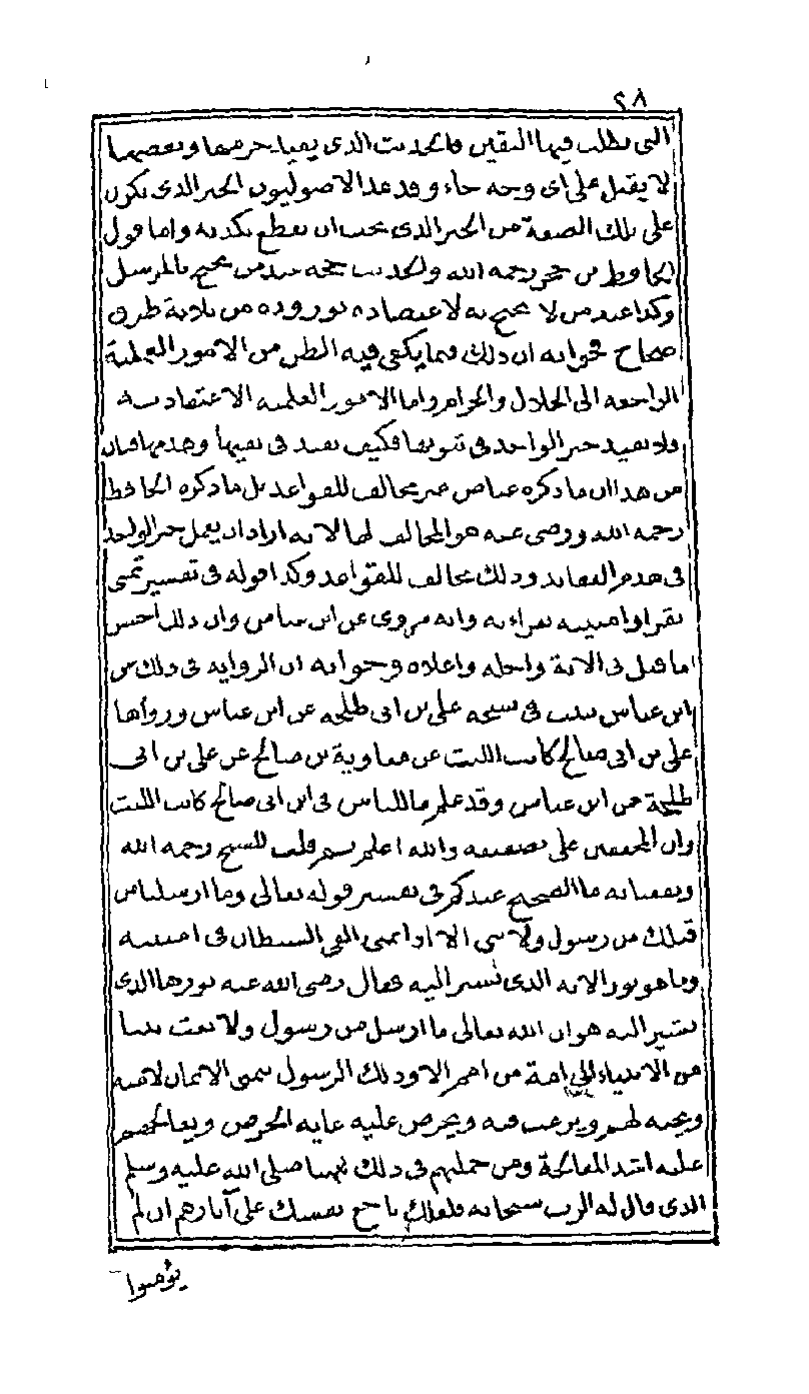 ٢٨
التى يطلب فيها اليقين فالحديث الذى يفيد خرمها ونقضها
لا يقبل على اى وجه جاء وقد عد الاصوليون الخبر الذى يكون
على تلك الصفة من الخبر الذى يجب ان يقطع بكذبه واما قول
الحافظ بن حجر رحمه الله والحديث حجة عند من يحتج بالمرسل
وكذا عند من لا يحتج به لاعتضاده بوروده من ثلاثة طرق
صحاح فجوابه ان ذلك فيما يكفى فيه الظن من الامور العملية
الراجعة الى الحلال والحرام واما الامور العلمية الاعتقادية
فلا يفيد خبر الواحد فى ثبوتها فكيف يفيد فى نفيها وهدمها فبان
من هذا ان ما ذكره عياض غير مخالف للقواعد بل ما ذكره الحافظ
رحمه الله ورضى عنه هو المخالف لها لانه اراد ان يعمل خبر الواحد
فى هدم العقايد وذلك مخالف للقواعد وكذا قوله فى تفسير تمنى
بقرا وامنيته بقراءته وانه مروى عن ابن عباس وان ذلك احسن
ما قيل فى الاية واجله واعلاه وجوابه ان الرواية فى ذلك عن
ابن عباس ثبتت فى نسخة على بن ابى طلحة عن ابن عباس ورواها
على بن ابى صالح كاتب الليث عن معاوية بن صالح عن على بن ابى
طلحة عن ابن عباس وقد علم ما للناس فى ابن ابى صالح كاتب الليث
وان المحققين على تضعيفه والله اعلم ثم قلت للشيخ رحمه الله
ونفعنا به ما الصحيح عندكم فى تفسير قوله تعالى وما ارسلنا من
قبلك من رسول ولا نبى الا اذا تمنى القى الشيطان فى امنيته
وما هو نور الاية الذى تشير اليه فقال رضى الله عنه نورها الذى
تشير اليه هو ان الله تعالى ما ارسل من رسول ولا بعث نبيا
من الانبياء الى امة من امم الا وذلك الرسول يتمنى الايمان لامته
ويحبه لهم ويرغب فيه ويحرص عليه غاية الحرص ويعالجهم
عليه اشد المعالجة ومن جملتهم فى ذلك نبينا صلى الله عليه وسلم
الذى قال له الرب سبحانه فلعلك باخع نفسك على آثارهم ان لم
يؤمنوا